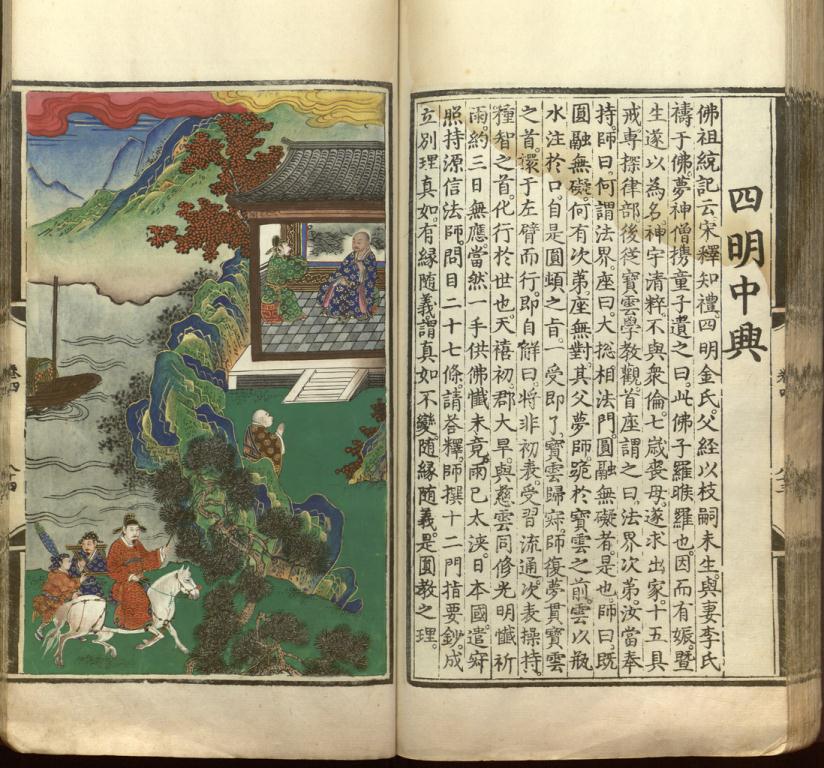 四明中興
佛祖統記云宋釋知禮。四明金氏。父經以枝嗣未生。與妻李氏
禱于佛。夢神僧携童子遺之曰。此佛子羅睺羅也。因而有娠。暨
生遂以為名。神宇清粹。不與衆倫。七歲喪母。遂求出家。十五具
戒。專探律部。後從寶雲學教觀。首座謂之曰。法界次第。汝當奉
持。師曰。何謂法界。座曰。大総相法門圓融無礙者。是也。師曰。既
圓融無礙。何有次第。座無對。其父夢師跪於寶雲之前。雲以瓶
水注於口。自是圓頓之旨。一受即了。寶雲歸寂。師復夢貫寶雲
之首。擐于左臂而行。即自解曰。將非初表。受習流通。次表操持。
種智之首。化行於世也。天禧初。郡大旱。與慈雲同修光明懺祈
雨。約三日無應。當然一手供佛懺未竟。雨已太浹。日本國遣寂
照持源信法師。問目二十七條。請荅釋。師撰十二門指要鈔。成
立別理真如。有緣隨義。謂真如不變。隨緣隨義。是圓教之理。
卷四